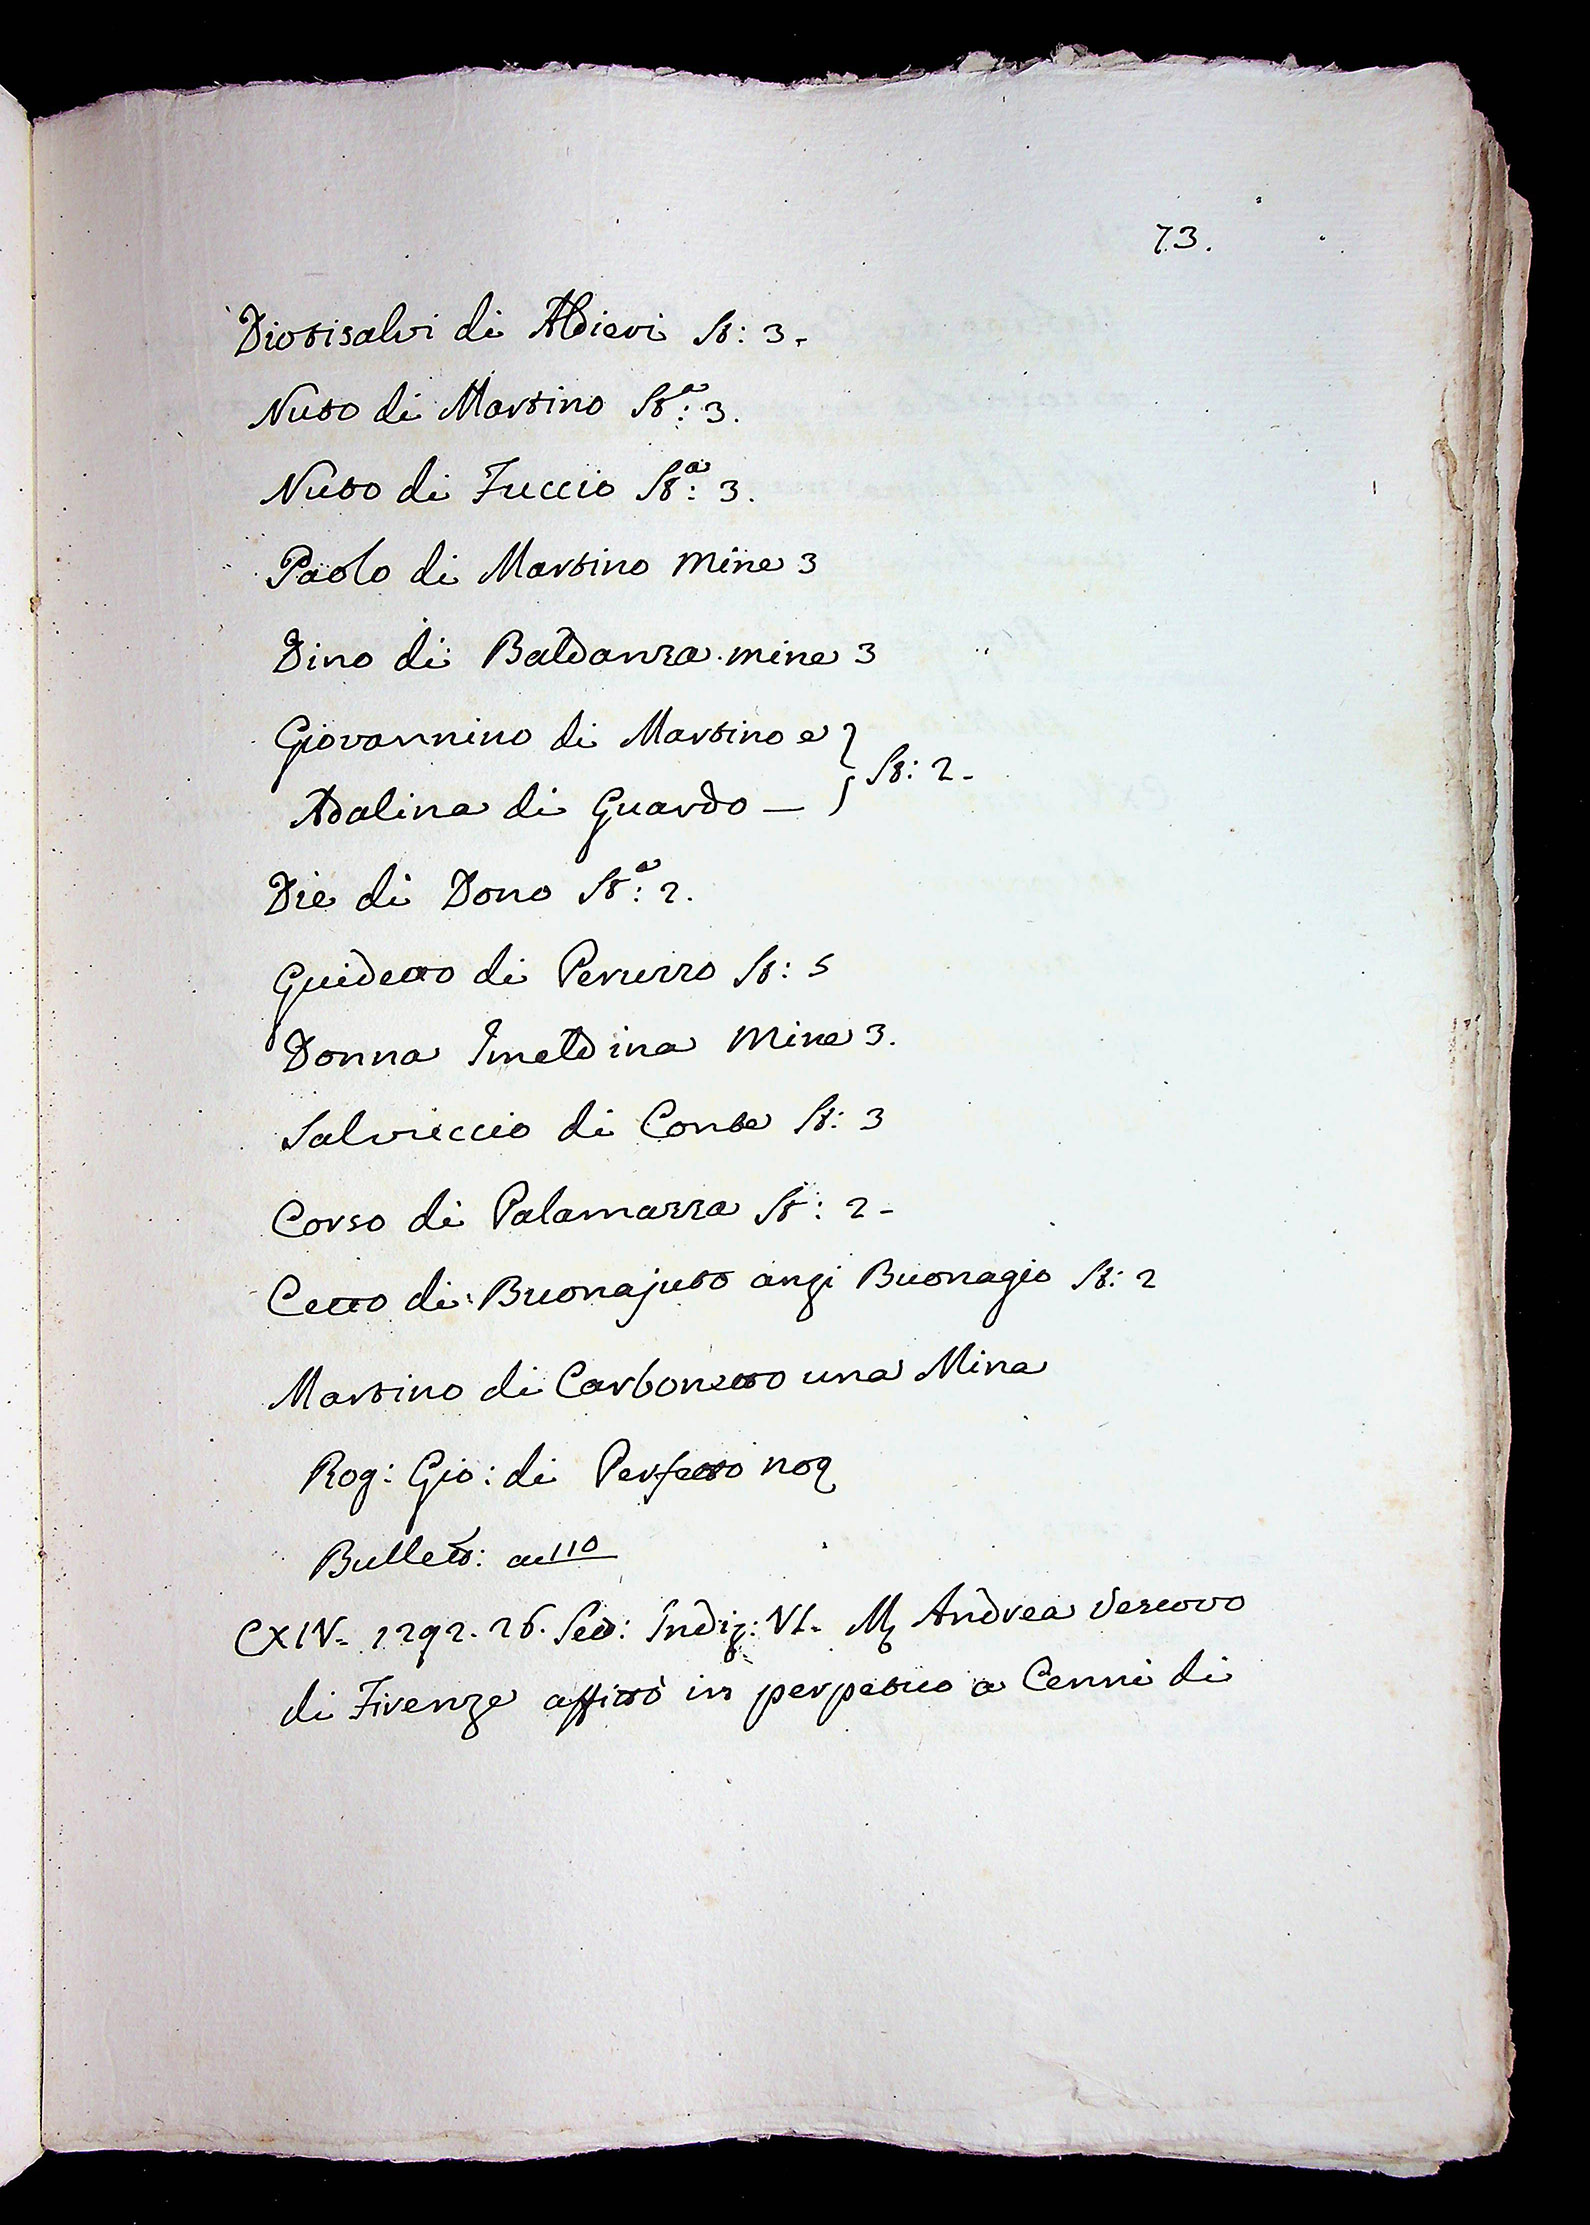 73.
Diotisalvi di Aldieri St: 3.
Nuto di Martino Stª: 3.
Nuto di Fuccio Stª: 3.
Paolo di Martino mine 3
Dino di Baldanza mine 3
Giovannino di Martino e } St: 2.
Adalina di Guardo —
Die di Dono Stª: 2.
Guidetto di Peruzzo St: 5
Donna Imeldina Mine 3.
Salviccio di Conte St: 3
Corso di Palamazza St: 2.
Cetto di Buonajuto anzi Buonagio St: 2
Martino di Carbonetto una Mina
Rog: Gio: di Perfetto no
Bullett: a 110
CXIV. 1292. 26. Indiz: VI. Andrea Vescovo
di Firenze affittò in perpetuo a Cenni di